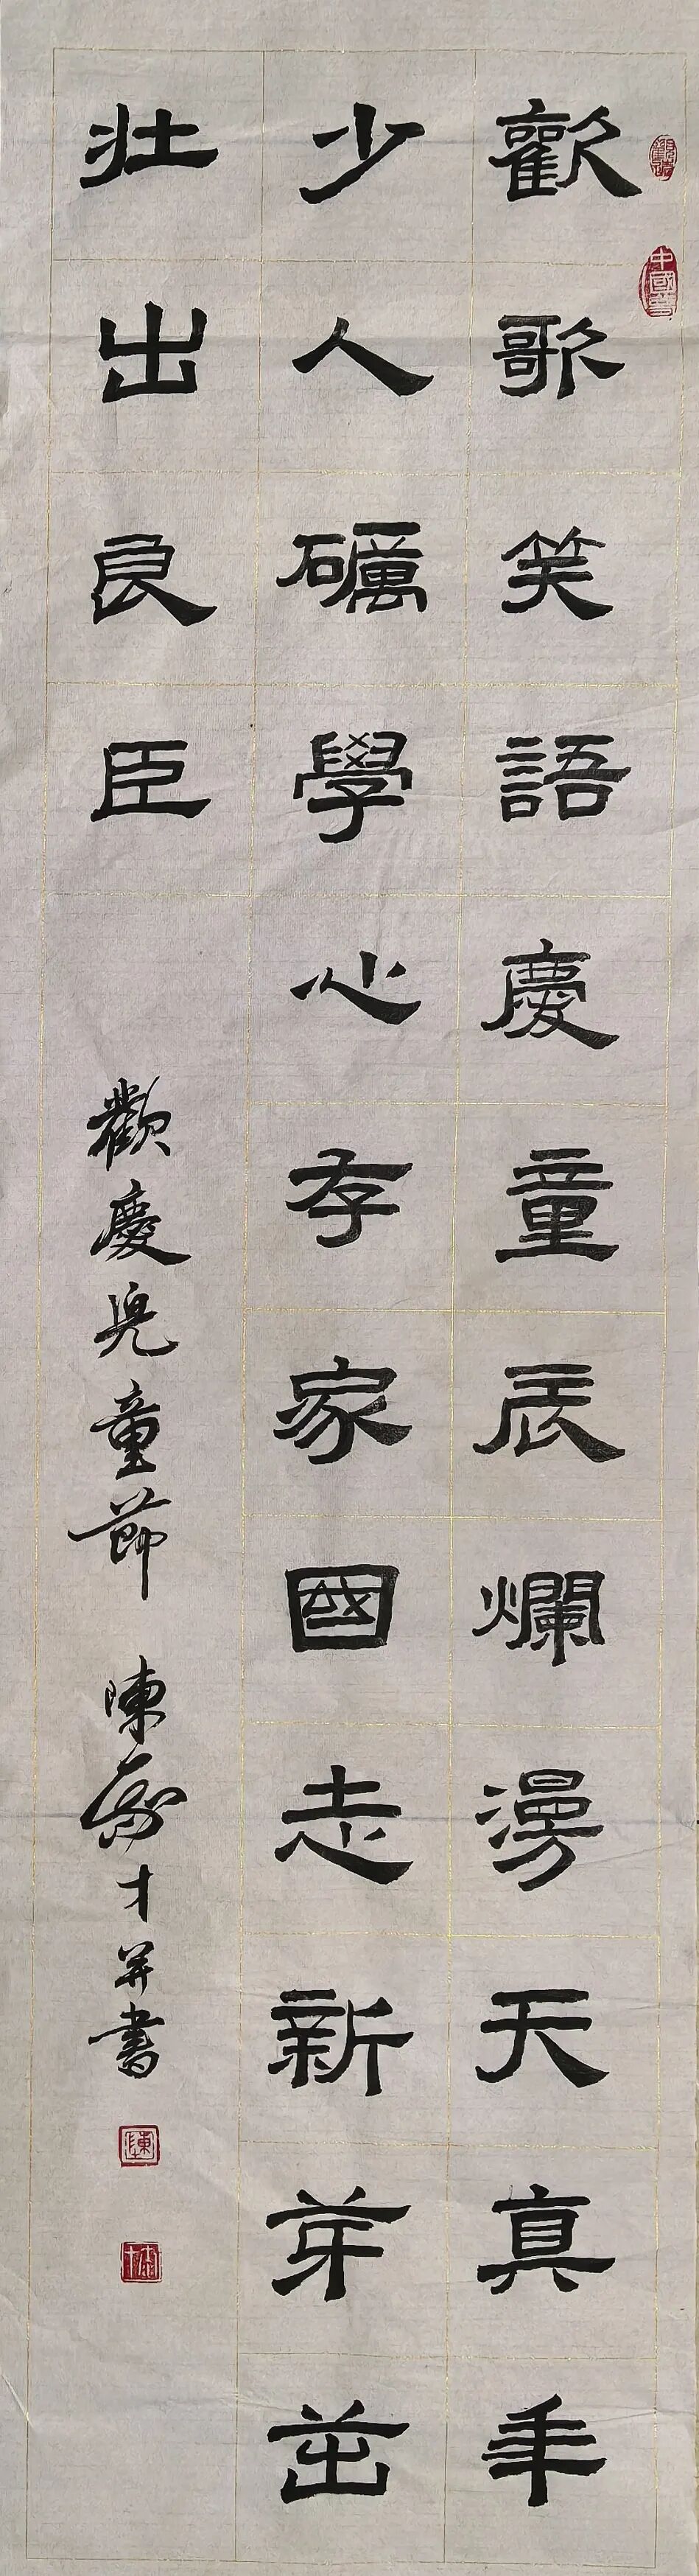 歡歌笑語慶童辰爛漫天真年
少人礪學心存家國志新芽茁
壯出良臣
歡慶兒童節
陳為才并書
中國夢
陳